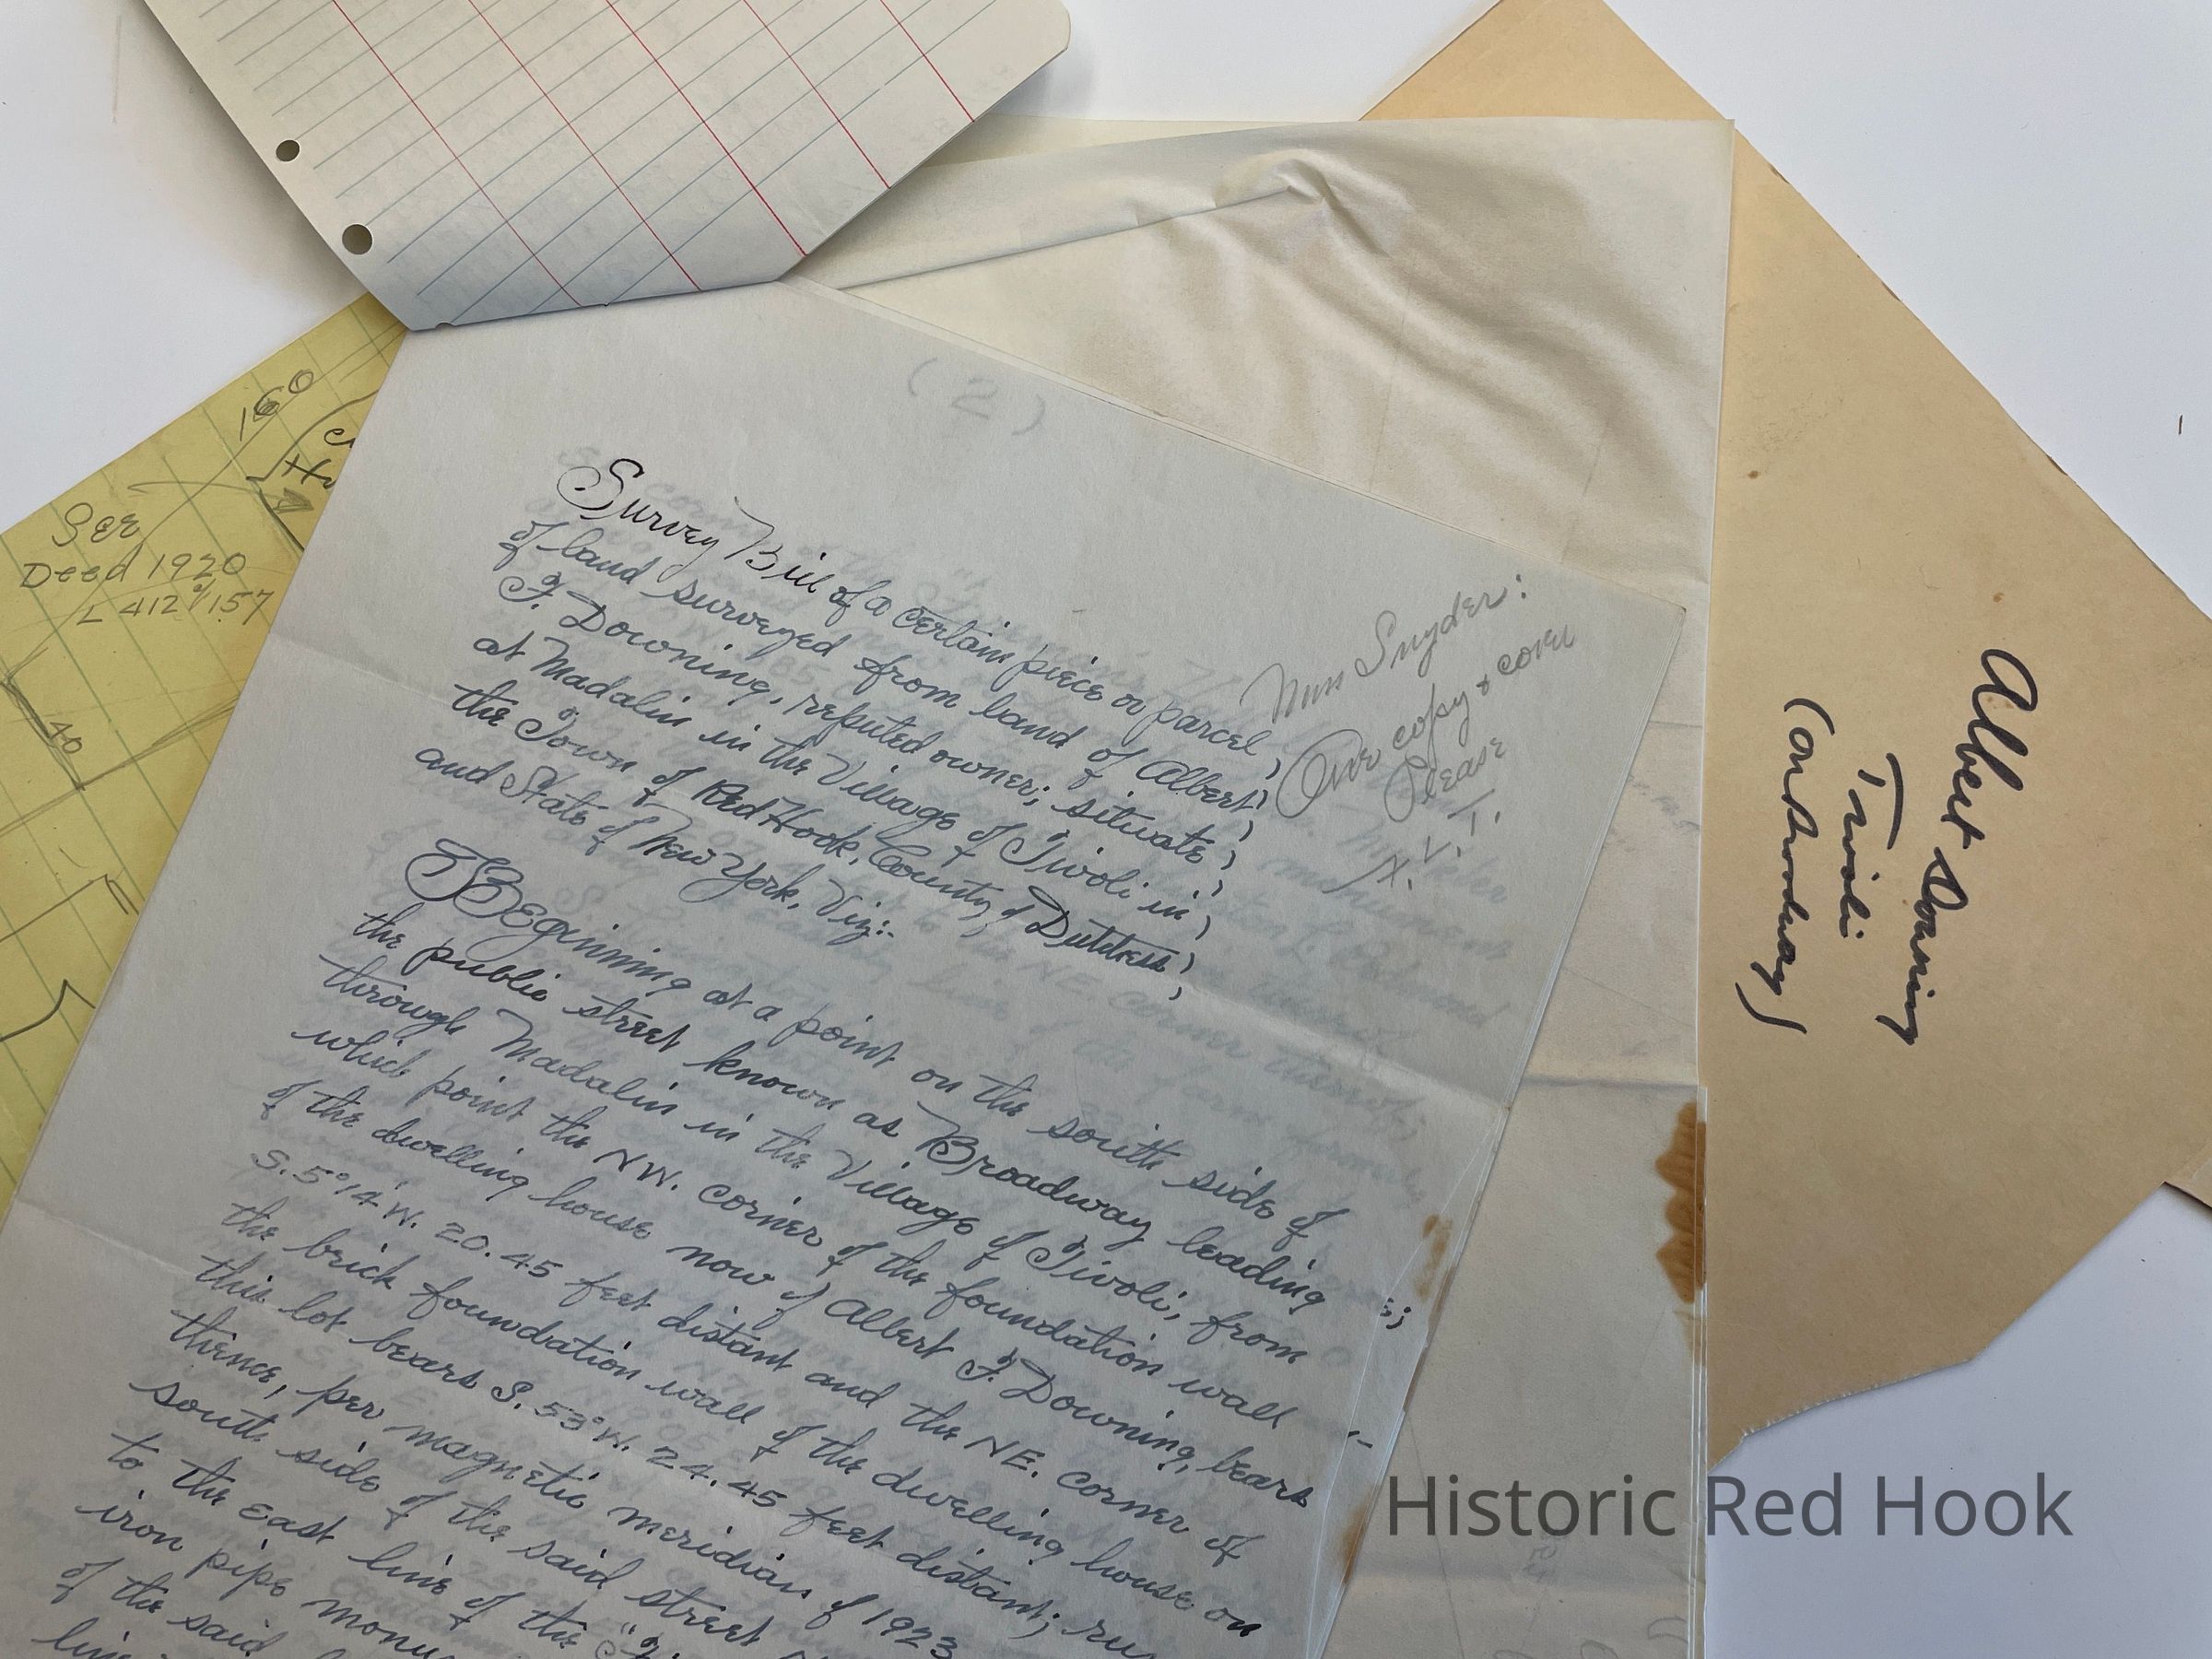 (2)
Survey Bill of a certain piece or parcel,
of land surveyed from land of Albert,
F. Downing, reputed owner; situate,
at Madalin in the Village of Tivoli in,
the Town of Red Hook, County of Dutchess,
and State of New York, Viz:-
Beginning at a point on the south side of
the public street known as Broadway leading
through Madalin in the Village of Tivoli, from
which point the NW. corner of the foundation wall
of the dwelling house now of Albert F. Downing, bears
S. 5°14' W. 20.45 feet distant and the NE. corner of
the brick foundation wall of the dwelling house on
this lot bears S. 53° W. 24.45 feet distant; run
thence, per magnetic meridian of 1923
south side of the said street
to the East line of the
iron pipe
of the said
Miss Snyder:
One copy &
Please
160
See
Deed 1920
L 412 P 157
40
Albert Downing
Tivoli
(on Broadway)
Historic Red Hook